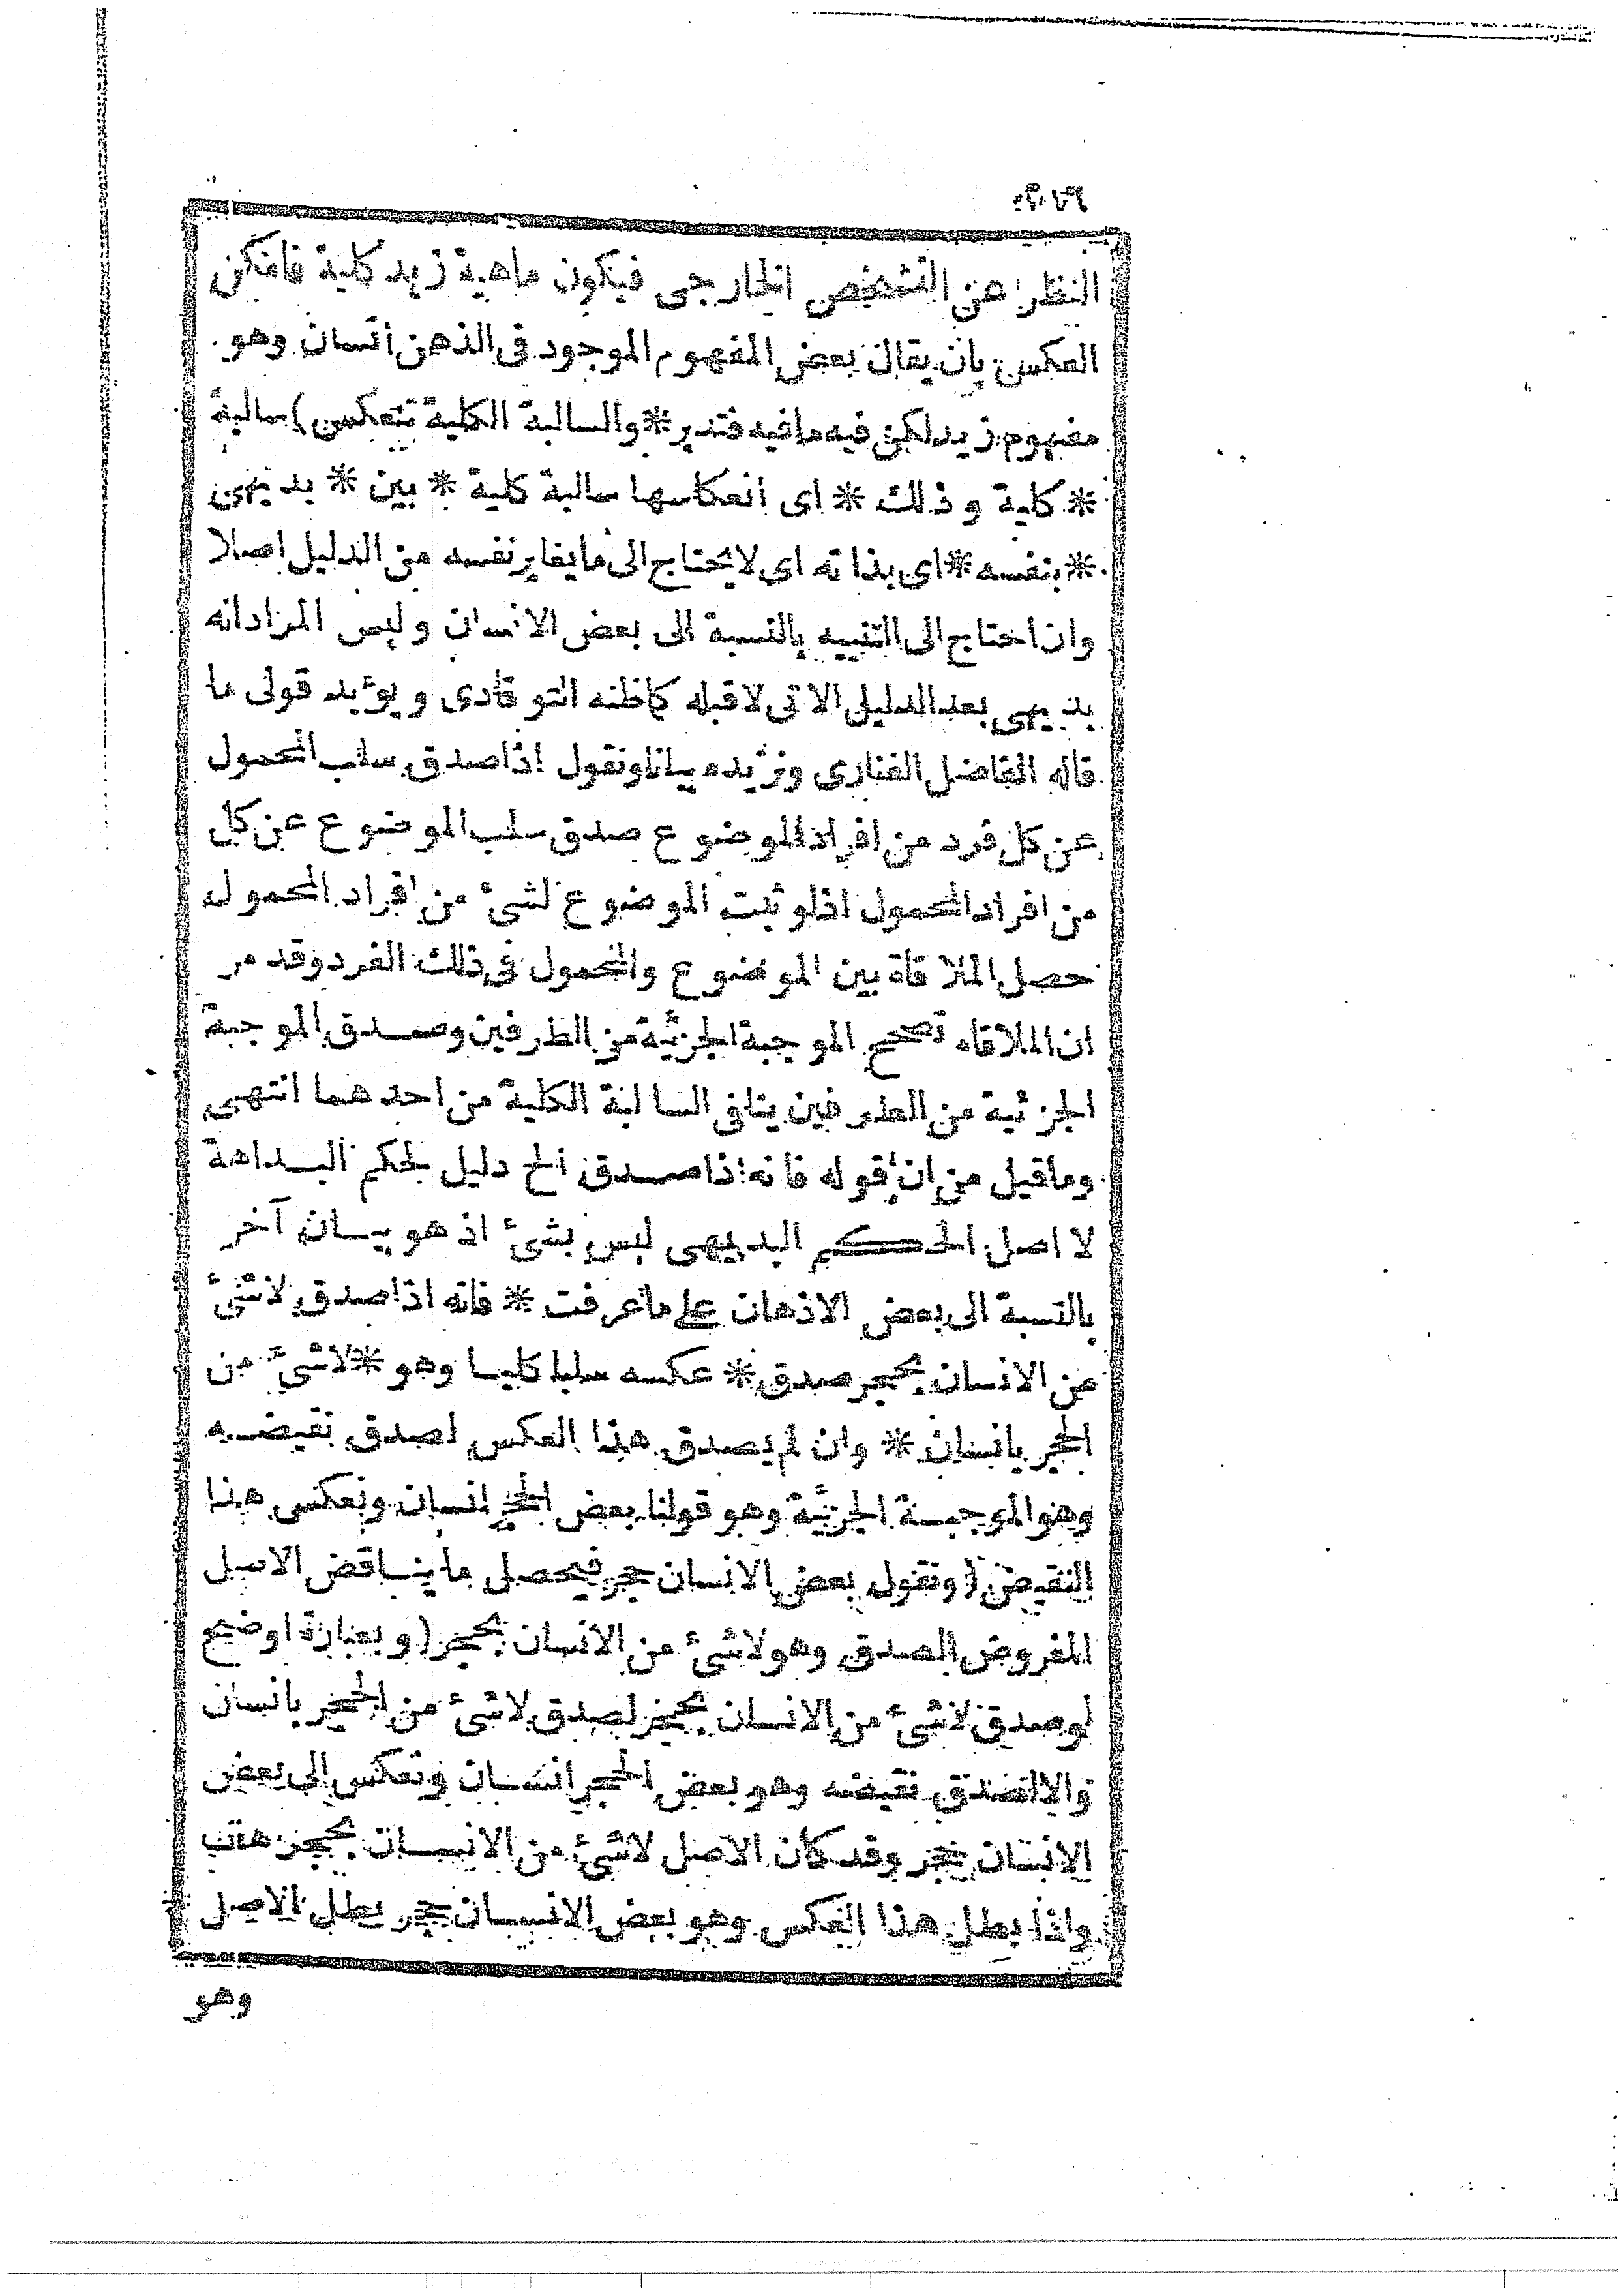 النظر عن التشخيص الخارجى فيكون ماهية زيد كلية فامكن
العكس بان يقال بعض المفهوم الموجود فى الذهن انسان وهو
مفهوم زيد لكن فيه مافيه فتدبر * والسالبة الكلية تنعكس) سالبة
* كلية وذلك * اى انعكاسها سالبة كلية * بين * بديهى
* بنفسه * اى بذاته اى لا يحتاج الى مايغاير نفسه من الدليل اصلا
وان احتاج الى التنبيه بالنسبة الى بعض الانسان وليس المراد انه
بديهى بعد الدليل الاتى لا قبله كماظنه التوقادى ويؤيد قولى ما
قاله الفاضل الفنارى ونزيده بيانا ونقول اذا صدق سلب المحمول
عن كل فرد من افراد الموضوع صدق سلب الموضوع عن كل
من افراد المحمول اذلو ثبت الموضوع لشئ من افراد المحمول
حصل الملاقاة بين الموضوع والمحمول فى ذلك الفرد وقد مر
ان الملاقاه تصحح الموجبة الجزئية من الطرفين وصدق الموجبة
الجزئية من الطرفين ينافى السالبة الكلية من احدهما انتهى
وماقيل من ان قوله فانه اذا صدق الخ دليل لحكم البداهة
لا اصل الحكم البديهى ليس بشئ اذ هو بيان آخر
بالنسبة الى بعض الاذهان على ماعرفت * فانه اذا صدق لاشئ
من الانسان بحجر صدق * عكسه سلبا كليا وهو * لاشئ من
الحجر بانسان * وان لم يصدق هذا العكس لصدق نقيضه
وهو الموجبة الجزئية وهو قولنا بعض الحجر انسان ونعكس هذا
النقيض (ونقول بعض الانسان حجر فيحصل ما يناقض الاصل
المفروض الصدق وهو لاشئ من الانسان بحجر (وبعبارة اوضح
لو صدق لاشئ من الانسان بحجر لصدق لاشئ من الحجر بانسان
والا لصدق نقيضه وهو بعض الحجر انسان ونعكس الى بعض
الانسان حجر وقد كان الاصل لاشئ من الانسان بحجر هف
واذا بطل هذا العكس وهو بعض الانسان حجر بطل الاصل
وهو